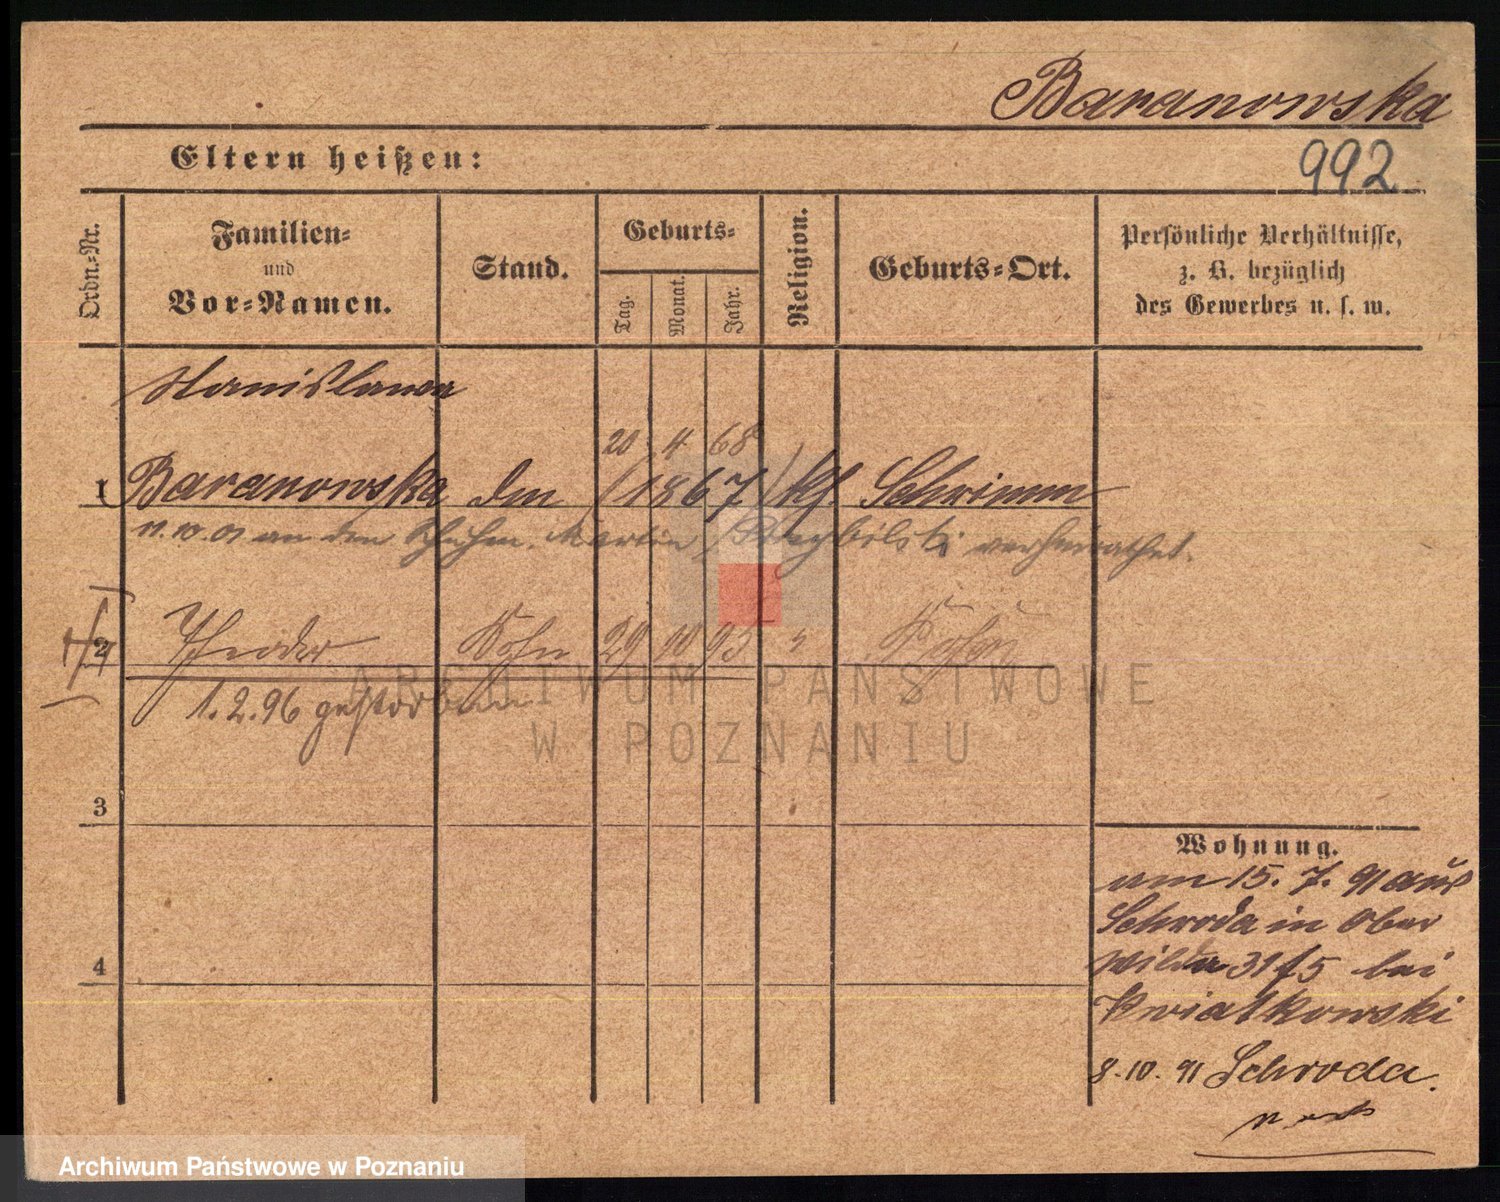 Baranowska
992
Eltern heißen:
Ordn.-Nr.
Familien-
und
Vor-Namen.
Stand.
Geburts-
Tag.
Monat.
Jahr.
Religion.
Geburts-Ort.
Persönliche Verhältnisse,
z. B. bezüglich
des Gewerbes u. s. w.
Stanislawa
20 4 68
1 Baranowska (1867) kf. Schrimm
an den Martin verheirathet.
2 Theodor Sohn 29 10 95 " Posen
1.2.96 gestorben
3
4
Wohnung.
am 15. 7. 91 aus
Schroda in Ober
Wilda 31 f 5 bei
Kwiatkowski
8.10.91 Schroda.
ARCHIWUM PAŃSTWOWE
W POZNANIU
Archiwum Państwowe w Poznaniu